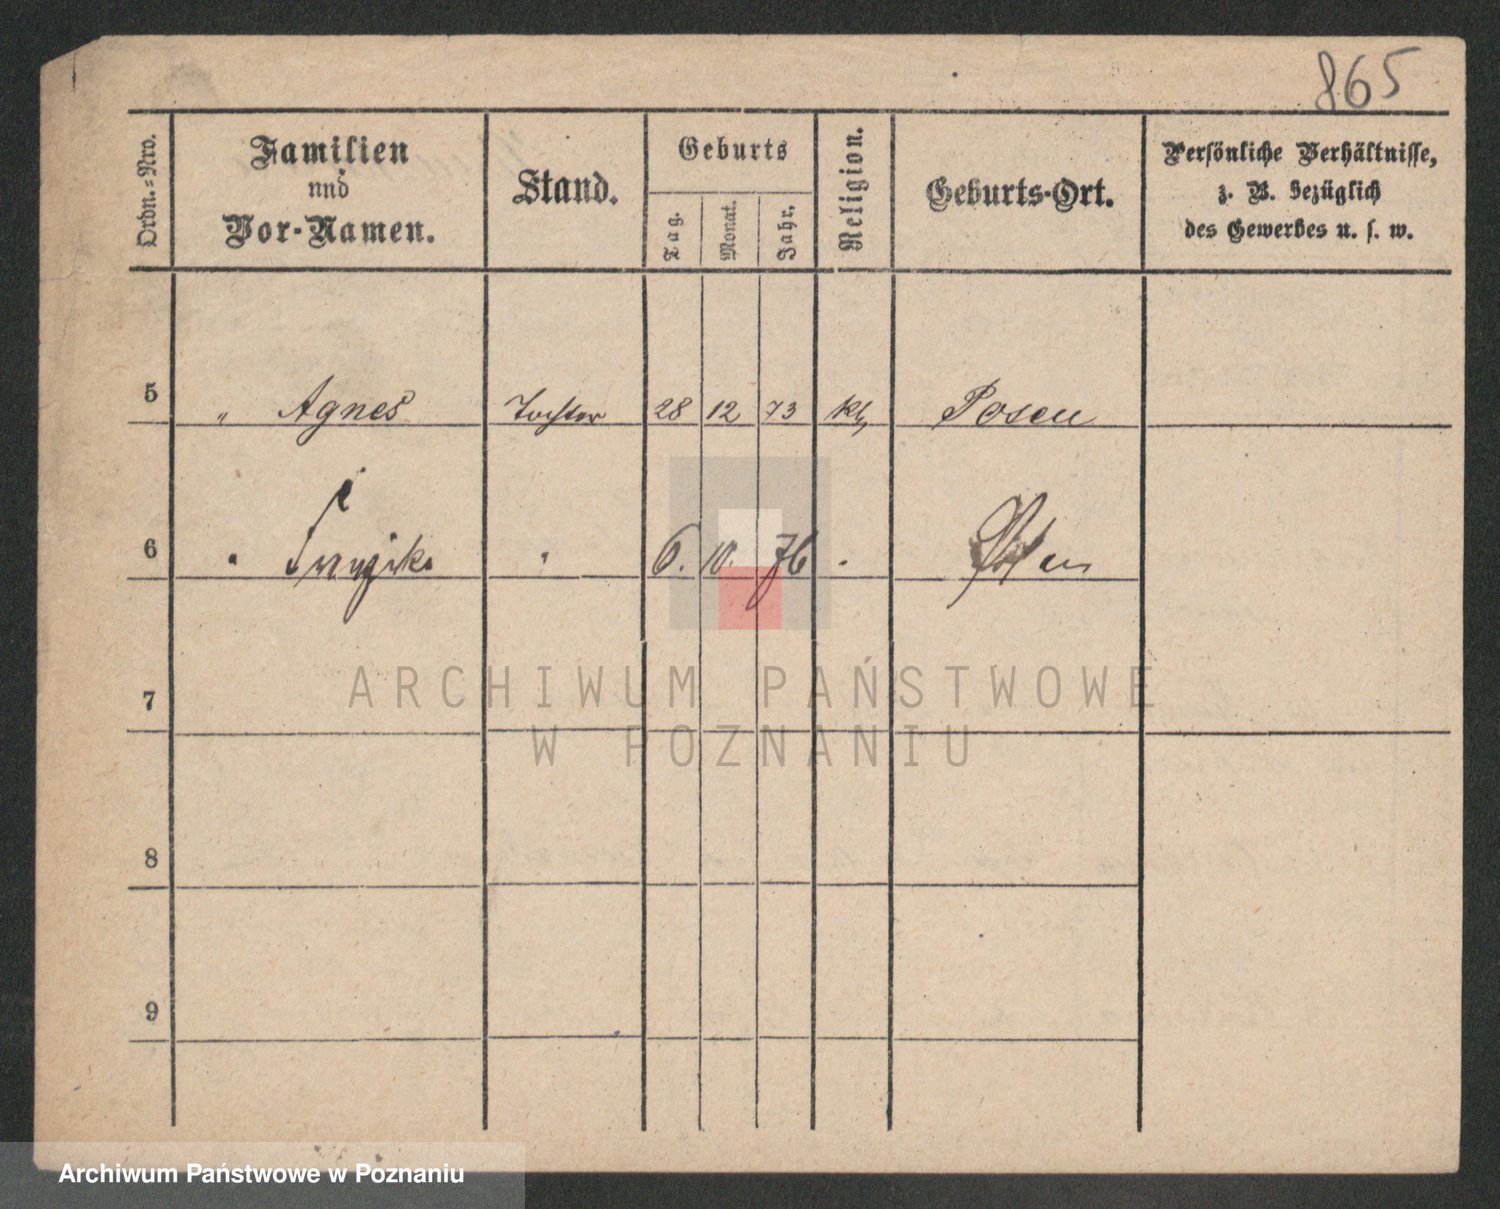 865
Ordn.=Nro.
Familien
und
Vor-Namen.
Stand.
Geburts
Tag.
Monat.
Jahr.
Religion.
Geburts-Ort.
Persönliche Verhältnisse,
z. B. bezüglich
des Gewerbes u. s. w.
5 " Agnes Tochter 28 12 73 kth Posen
6 " " 6. 10. 76 " Posen
7
8
9
ARCHIWUM PAŃSTWOWE
W POZNANIU
Archiwum Państwowe w Poznaniu